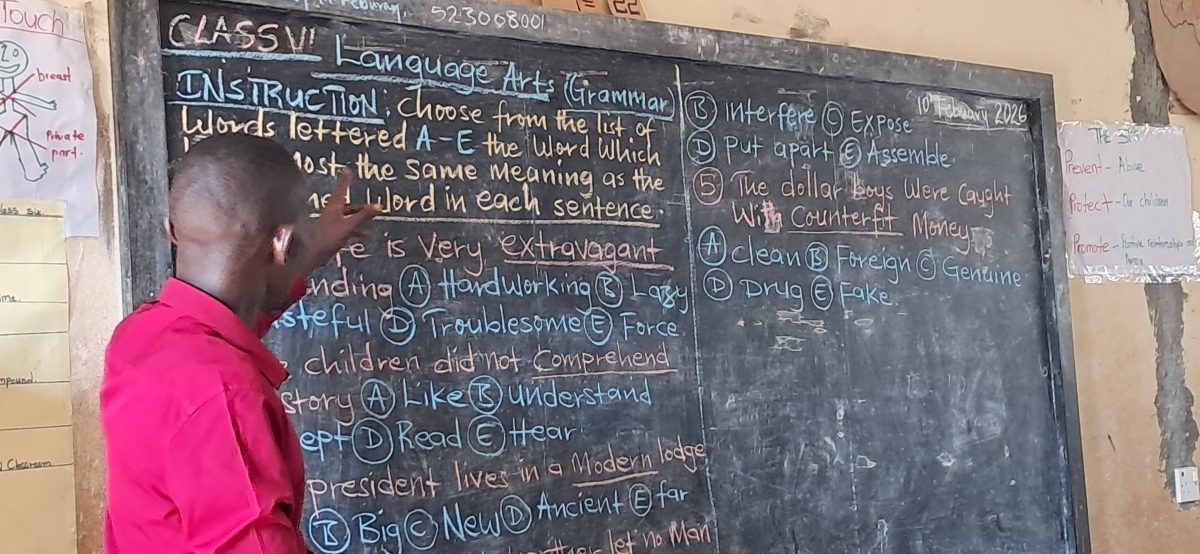 Touch
breast
Private
part.
523008001
CLASS VI
Language Arts (Grammar)
INSTRUCTION: Choose from the list of
Words lettered A-E the Word which
most the same meaning as the
Word in each sentence.
is very extravagant
Ⓐ Hardworking Ⓑ Lazy
Ⓓ Troublesome Ⓔ Force
children did not comprehend
story Ⓐ Like Ⓑ understand
Ⓓ Read Ⓔ Hear
president lives in a Modern lodge
Ⓑ Big Ⓒ New Ⓓ Ancient Ⓔ far
let no Man
10th February 2026
Ⓑ interfere Ⓒ Expose
Ⓓ Put apart Ⓔ Assemble.
⑤ The dollar boys were caught
With Counterfit Money
Ⓐ clean Ⓑ Foreign Ⓒ Genuine
Ⓓ Drug Ⓔ Fake.
Prevent - Abuse
Protect - Our children
Promote - Positive relationships
Classroom